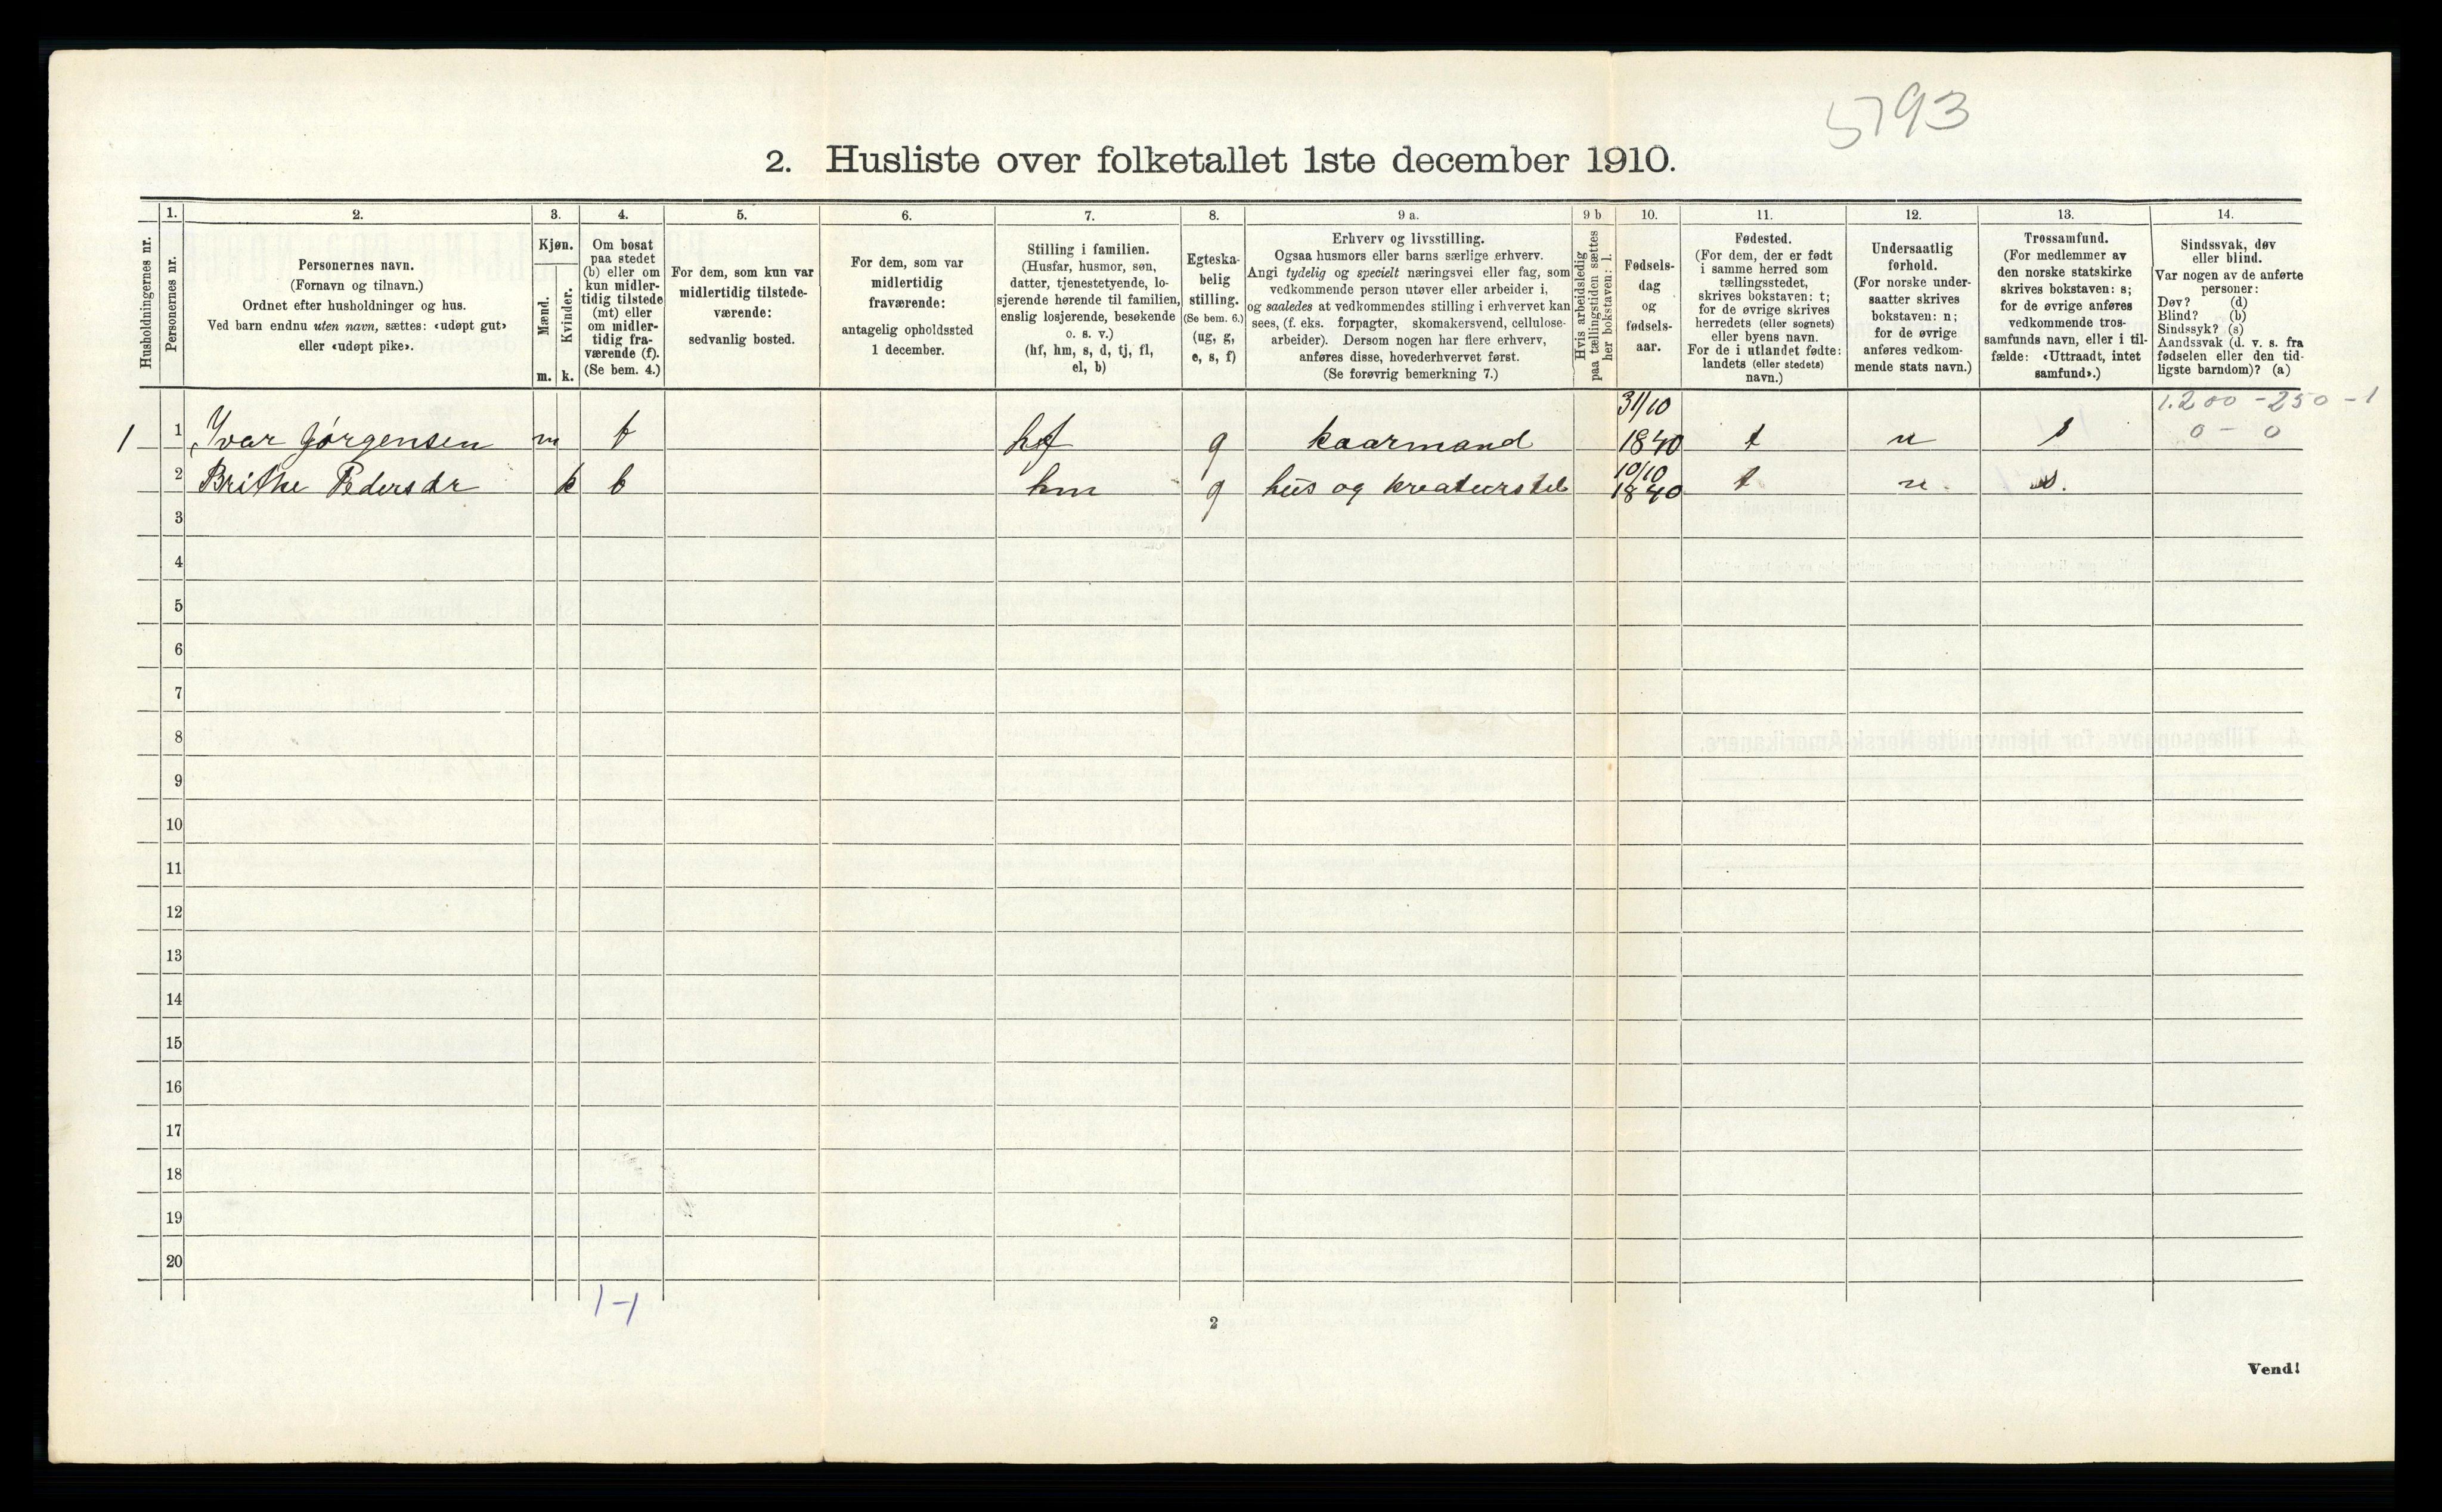 5793
2. Husliste over folketallet 1ste december 1910.
Husholdningernes nr.
1.
Personernes nr.
2.
Personernes navn.
(Fornavn og tilnavn.)
Ordnet efter husholdninger og hus.
Ved barn endnu uten navn, sættes: «udøpt gut»
eller «udøpt pike».
3.
Kjøn.
Mænd.
Kvinder.
m. k.
4.
Om bosat
paa stedet
(b) eller om
kun midler-
tidig tilstede
(mt) eller
om midler-
tidig fra-
værende (f).
(Se bem. 4.)
5.
For dem, som kun var
midlertidig tilstede-
værende:
sedvanlig bosted.
6.
For dem, som var
midlertidig
fraværende:
antagelig opholdssted
1 december.
7.
Stilling i familien.
(Husfar, husmor, søn,
datter, tjenestetyende, lo-
sjerende hørende til familien,
enslig losjerende, besøkende
o. s. v.)
(hf, hm, s, d, tj, fl,
el, b)
8.
Egteska-
belig
stilling.
(Se bem. 6.)
(ug, g,
e, s, f)
9 a.
Erhverv og livsstilling.
Ogsaa husmors eller barns særlige erhverv.
Angi tydelig og specielt næringsvei eller fag, som
vedkommende person utøver eller arbeider i,
og saaledes at vedkommendes stilling i erhvervet kan
sees, (f. eks. forpagter, skomakersvend, cellulose-
arbeider). Dersom nogen har flere erhverv,
anføres disse, hovederhvervet først.
(Se forøvrig bemerkning 7.)
9 b
Hvis arbeidsledig
paa tællingstiden sættes
her bokstaven: l.
10.
Fødsels-
dag
og
fødsels-
aar.
11.
Fødested.
(For dem, der er født
i samme herred som
tællingsstedet,
skrives bokstaven: t;
for de øvrige skrives
herredets (eller sognets)
eller byens navn.
For de i utlandet fødte:
landets (eller stedets)
navn.)
12.
Undersaatlig
forhold.
(For norske under-
saatter skrives
bokstaven: n;
for de øvrige
anføres vedkom-
mende stats navn.)
13.
Trossamfund.
(For medlemmer av
den norske statskirke
skrives bokstaven: s;
for de øvrige anføres
vedkommende tros-
samfunds navn, eller i til-
fælde: «Uttraadt, intet
samfund».)
14.
Sindssvak, døv
eller blind.
Var nogen av de anførte
personer:
Døv? (d)
Blind? (b)
Sindssyk? (s)
Aandssvak (d. v. s. fra
fødselen eller den tid-
ligste barndom)? (a)
1.200 - 250 - 1
0 - 0
1 1 Ivar Jørgensen m b hf g kaarmand 31/10 1840 t n s
2 Brithe Pedersdr k b hm g hus og kreaturstel 10/10 1840 t n s.
3
4
5
6
7
8
9
10
11
12
13
14
15
16
17
18
19
20
1-1
2
Vend!